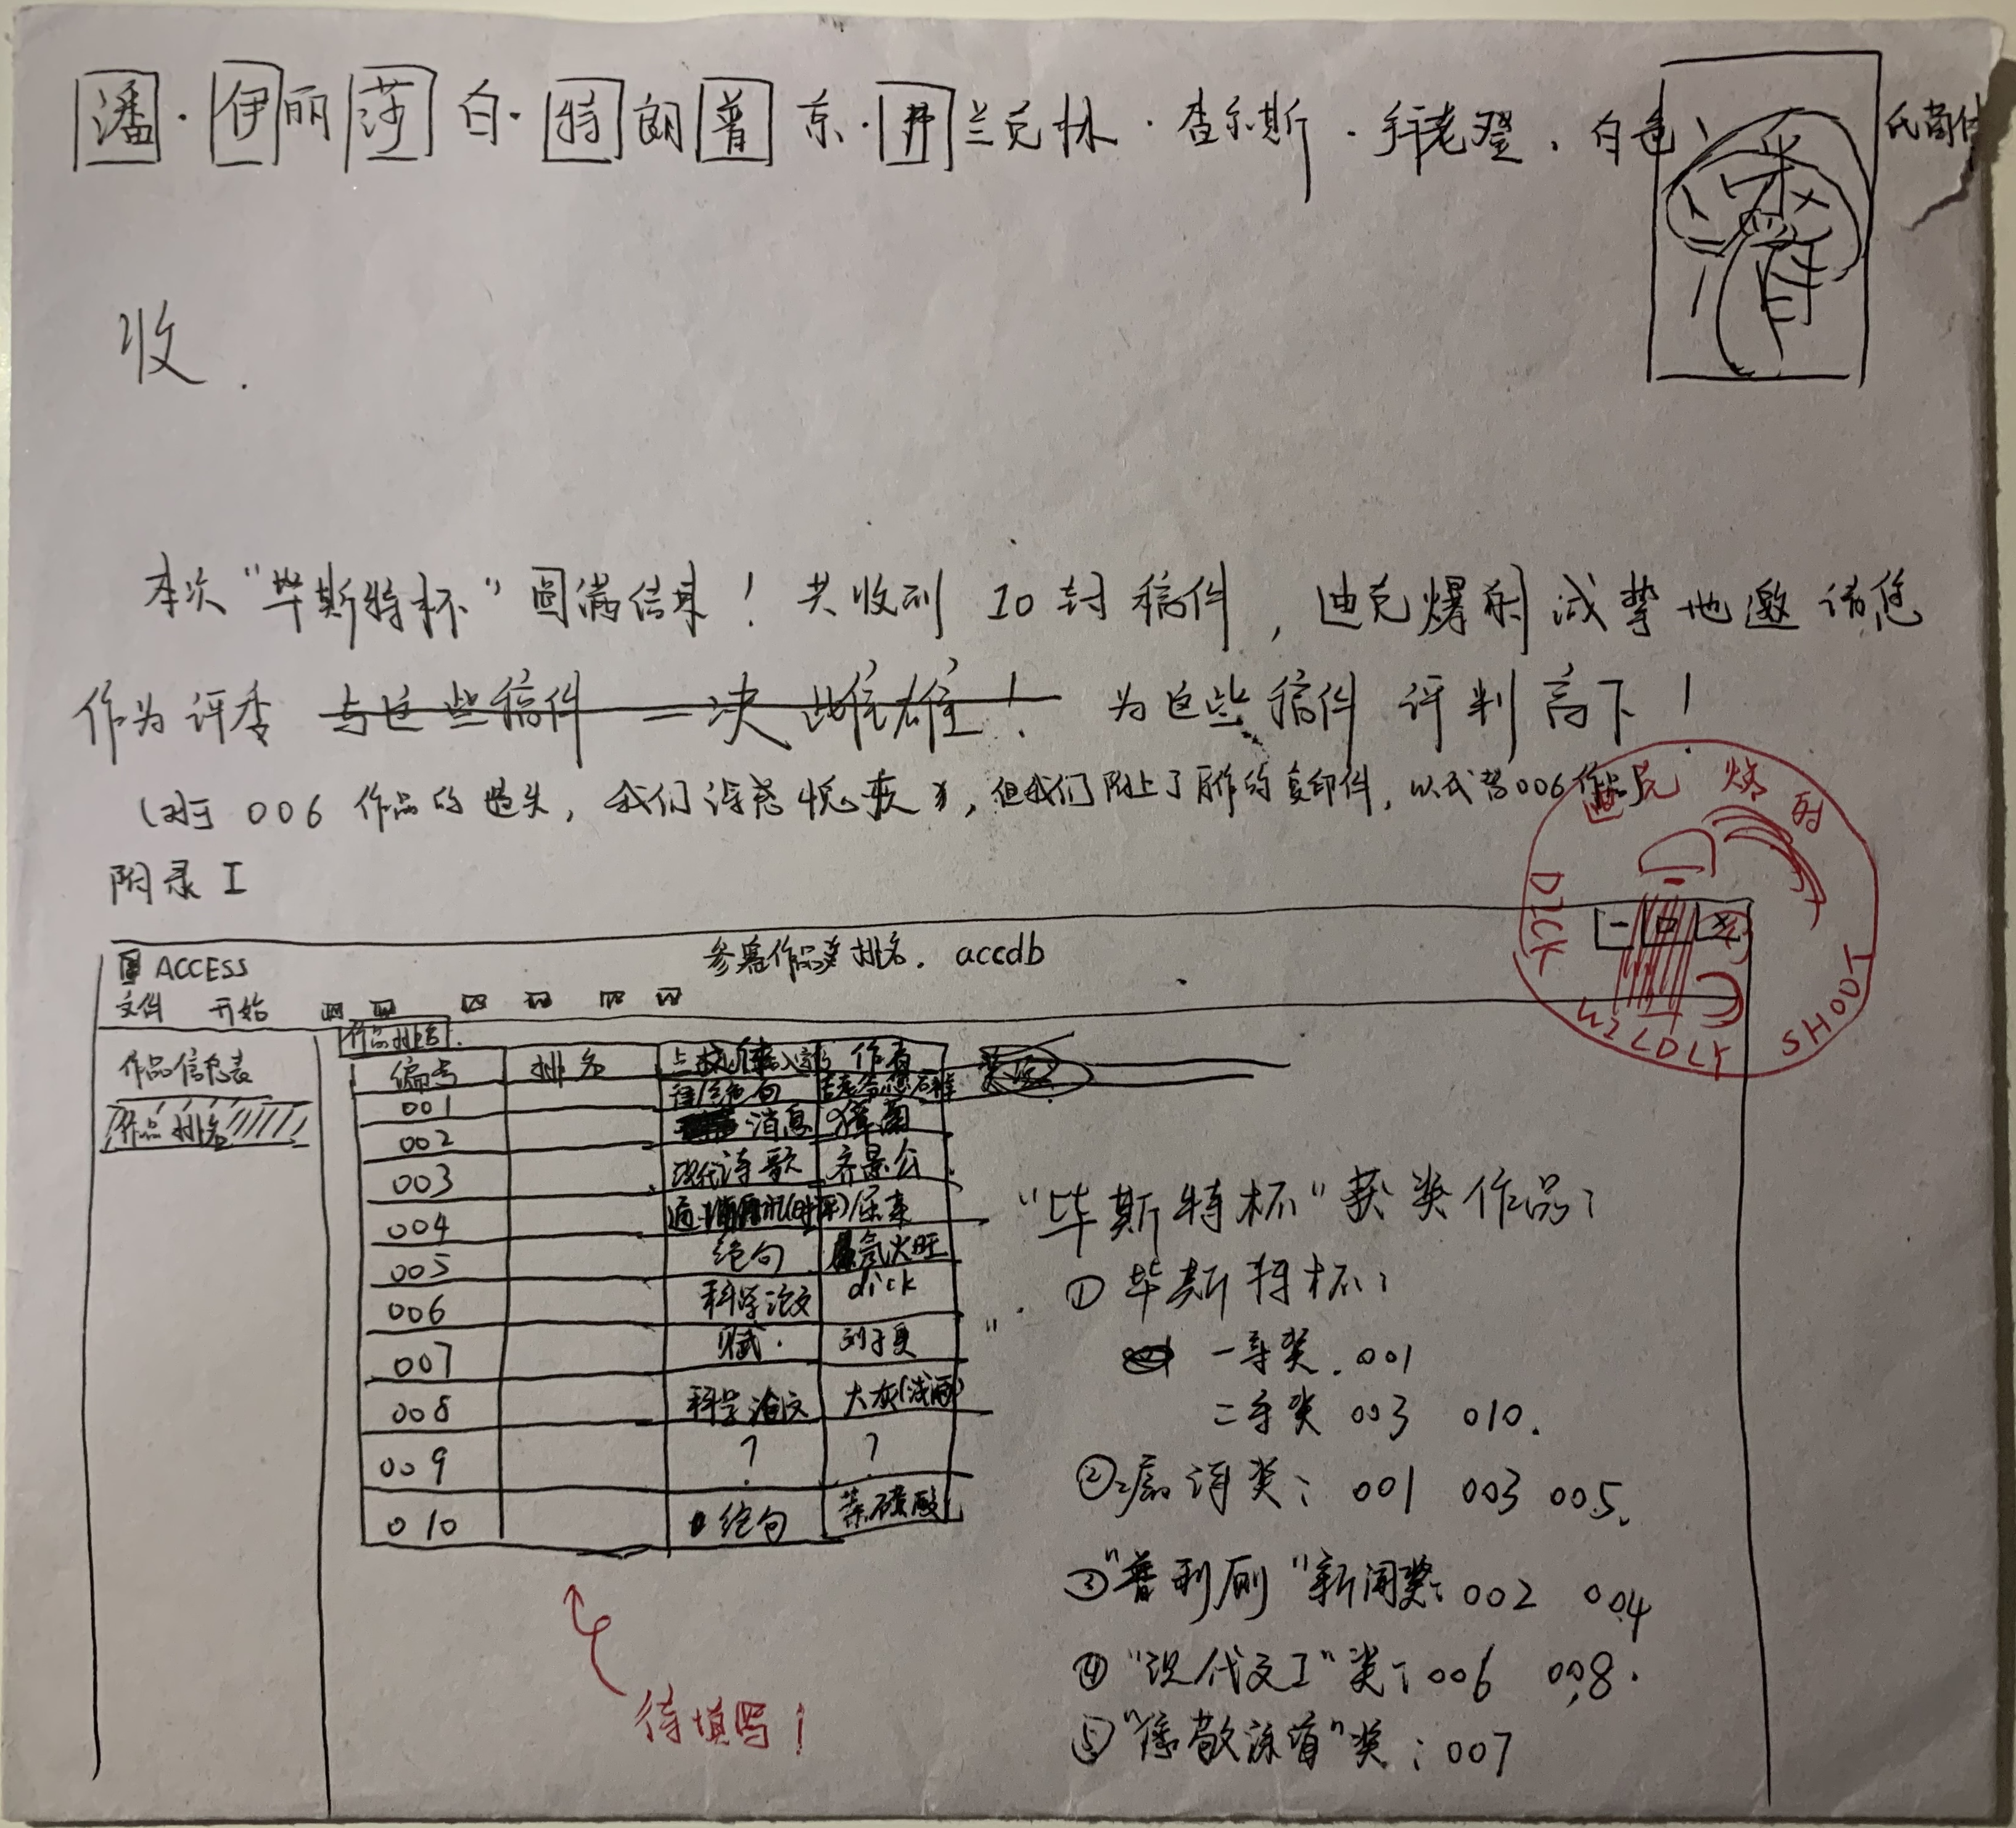 潘·伊丽莎白·特朗普京·弗兰克林·查尔斯·拜老登·白色
收.
本次“毕斯特杯”圆满结束！共收到 10 封稿件，迪克爆射诚挚地邀请您
作为评委 与这些稿件 一决雌雄！ 为这些稿件评判高下！
(对于 006 作品的遗失，我们深感 ，但我们附上了 作的复印件，以代替006作品
附录 I
迪克 射
DICK WILDLY SHOOT
参赛作品 排名. accdb
ACCESS
文件 开始
作品信息表
作品排名
作品排名
编号 排名 作者
001 绝句
002 消息
003 现代诗歌 齐景公
004
005 绝句 火旺
006 科学论文 dick
007 赋. 刘子夏
008 科学论文 大灰
009 ? ?
010 绝句
待填写！
“毕斯特杯”获奖作品：
① 毕斯特杯：
一等奖. 001
二等奖 003 010.
② 诗类： 001 003 005.
③“普利 ”新闻奖： 002 004
④“现代文工”类：006 008.
⑤“ ”奖：007